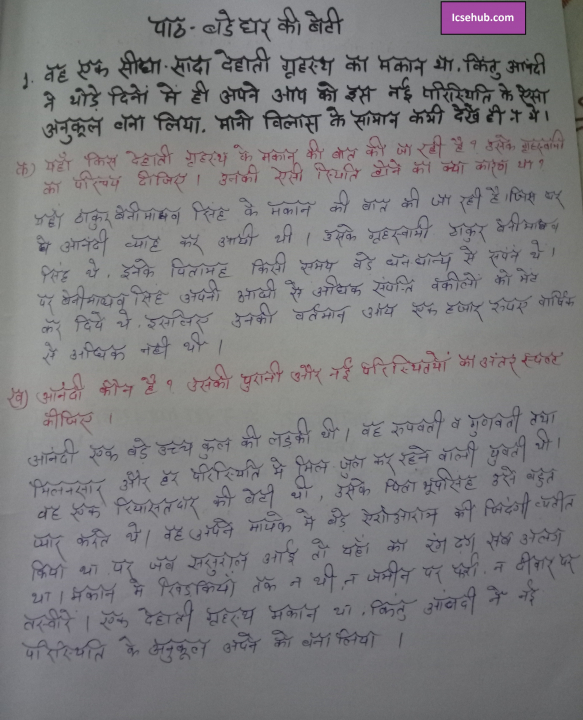 Icsehub.com
पाठ - बडे घर की बेटी
1. वह एक सीधा-सादा देहाती गृहस्थ का मकान था, किंतु आनंदी
ने थोड़े दिनों में ही अपने आप को इस नई परिस्थिति के ऐसा
अनुकूल बना लिया, मानो विलास के सामान कभी देखे ही न थे।
क) यहाँ किस देहाती गृहस्थ के मकान की बात की जा रही है? उसके गृहस्वामी
का परिचय दीजिए। उनकी ऐसी स्थिति होने का क्या कारण था?
यहाँ ठाकुर बेनीमाधव सिंह के मकान की बात की जा रही है। जिस घर
मे आनंदी ब्याह कर आयी थी। उसके गृहस्वामी ठाकुर बेनीमाधव
सिंह थे। इनके पितामह किसी समय बडे धन धान्य से संपन्न थे।
पर बेनीमाधव सिंह अपनी आधी से अधिक संपत्ति वकीलों को भेंट
कर दिये थे। इसलिए उनकी वर्तमान आय एक हजार रुपए वार्षिक
से अधिक नही थी।
ख) आनंदी कौन है? उसकी पुरानी और नई परिस्थितियों का अंतर स्पष्ट
कीजिए।
आनंदी एक बडे उच्च कुल की लडकी थी। वह रुपवती व गुणवती तथा
मिलनसार और हर परिस्थिति मे मिल जुल कर रहने वाली युवती थी।
वह एक रियासतदार की बेटी थी, उसके पिता भूपसिंह उसे बहुत
प्यार करते थे। वह अपने मायके मे बडे ऐशोआराम की जिंदगी व्यतीत
किया था पर जब ससुराल आई तो यहाँ का रंग ढंग सब अलग
था। मकान मे खिडकियाँ तक न थी, न जमीन पर फर्श, न दीवार पर
तस्वीरे। एक देहाती गृहस्थ मकान था, किंतु आनंदी ने नई
परिस्थिति के अनुकूल अपने को बना लिया।